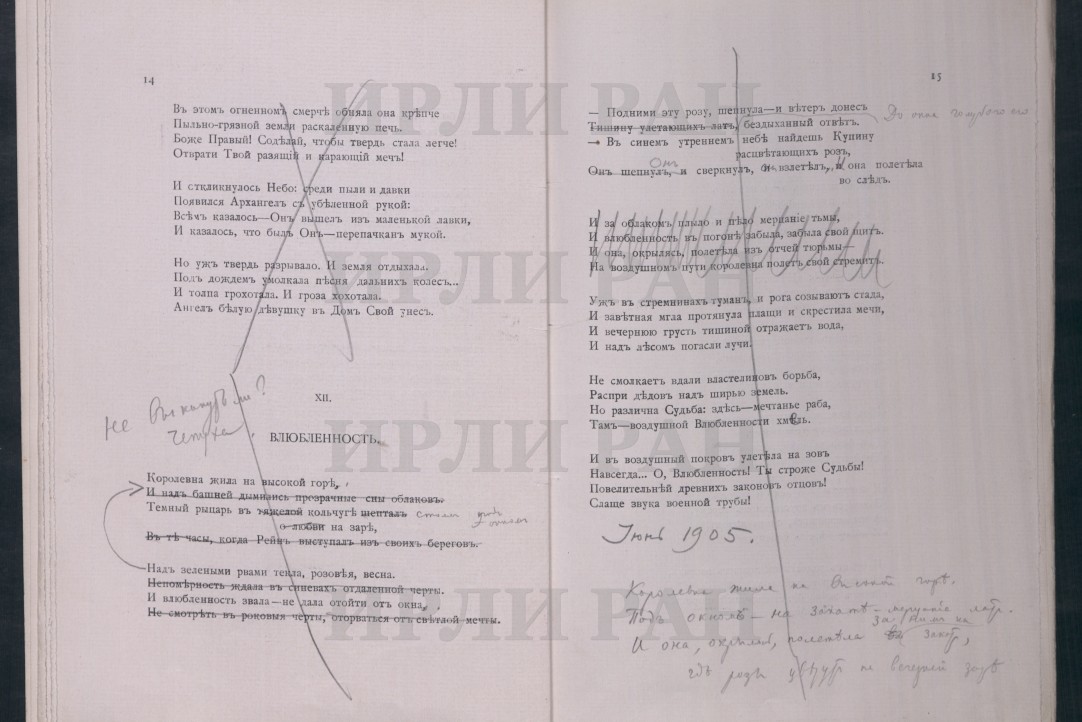 14
Въ этомъ огненномъ смерчѣ обняла она крѣпче
Пыльно-грязной земли раскаленную печь.
Боже Правый! Содѣлай, чтобы твердь стала легче!
Отврати Твой разящій и карающій мечъ!
И откликнулось Небо: среди пыли и давки
Появился Архангелъ съ убѣленной рукой:
Всѣмъ казалось—Онъ вышелъ изъ маленькой лавки,
И казалось, что былъ Онъ—перепачканъ мукой.
Но ужъ твердь разрывало. И земля отдыхала.
Подъ дождемъ умолкала пѣсня дальнихъ колесъ...
И толпа грохотала. И гроза хохотала.
Ангелъ бѣлую дѣвушку въ Домъ Свой унесъ.
Не выкинуть ли?
Чепуха.
XII.
ВЛЮБЛЕННОСТЬ.
Королевна жила на высокой горѣ,
И надъ башней дымились прозрачные сны облаковъ.
Темный рыцарь въ тяжелой кольчугѣ шепталъ
о любви на зарѣ,
Въ тѣ часы, когда Рейнъ выступалъ изъ своихъ береговъ.
Надъ зелеными рвами текла, розовѣя, весна.
Непомѣрность ждала въ синевахъ отдаленной черты.
И влюбленность звала—не дала отойти отъ окна,
Не смотрѣть въ роковыя черты, оторваться отъ свѣтлой мечты.
15
— Подними эту розу, шепнула—и вѣтеръ донесъ
До окна голубого его
Тишину улетающихъ латъ, бездыханный отвѣтъ.
— Въ синемъ утреннемъ небѣ найдешь Купину
расцвѣтающихъ розъ,
Онъ
Онъ шепнулъ, и сверкнулъ, и взлетѣлъ, и она полетѣла
во слѣдъ.
И за облакомъ плыло и пѣло мерцаніе тьмы,
И влюбленность въ погонѣ забыла, забыла свой щитъ.
И она, окрылясь, полетѣла изъ отчей тюрьмы—
На воздушномъ пути королевна полетъ свой стремитъ.
Ужъ въ стремнинахъ туманъ, и рога созываютъ стада,
И завѣтная мгла протянула плащи и скрестила мечи,
И вечернюю грусть тишиной отражаетъ вода,
И надъ лѣсомъ погасли лучи.
Не смолкаетъ вдали властелиновъ борьба,
Распри дѣдовъ надъ ширью земель.
Но различна Судьба: здѣсь—мечтанье раба,
Тамъ—воздушной Влюбленности хмель.
И въ воздушный покровъ улетѣла на зовъ
Навсегда... О, Влюбленность! Ты строже Судьбы!
Повелительнѣй древнихъ законовъ отцовъ!
Слаще звука военной трубы!
Іюнь 1905.
Королевна жила на высокой горѣ.
Подъ окномъ — на закатѣ — мерцаніе латъ.
за нимъ на
И она, окрылясь, полетѣла въ закатъ,
гдѣ розы цвѣтутъ на вечерней зарѣ
ИРЛИ РАН
ИРЛИ РАН
ИРЛИ РАН
ИРЛИ РАН